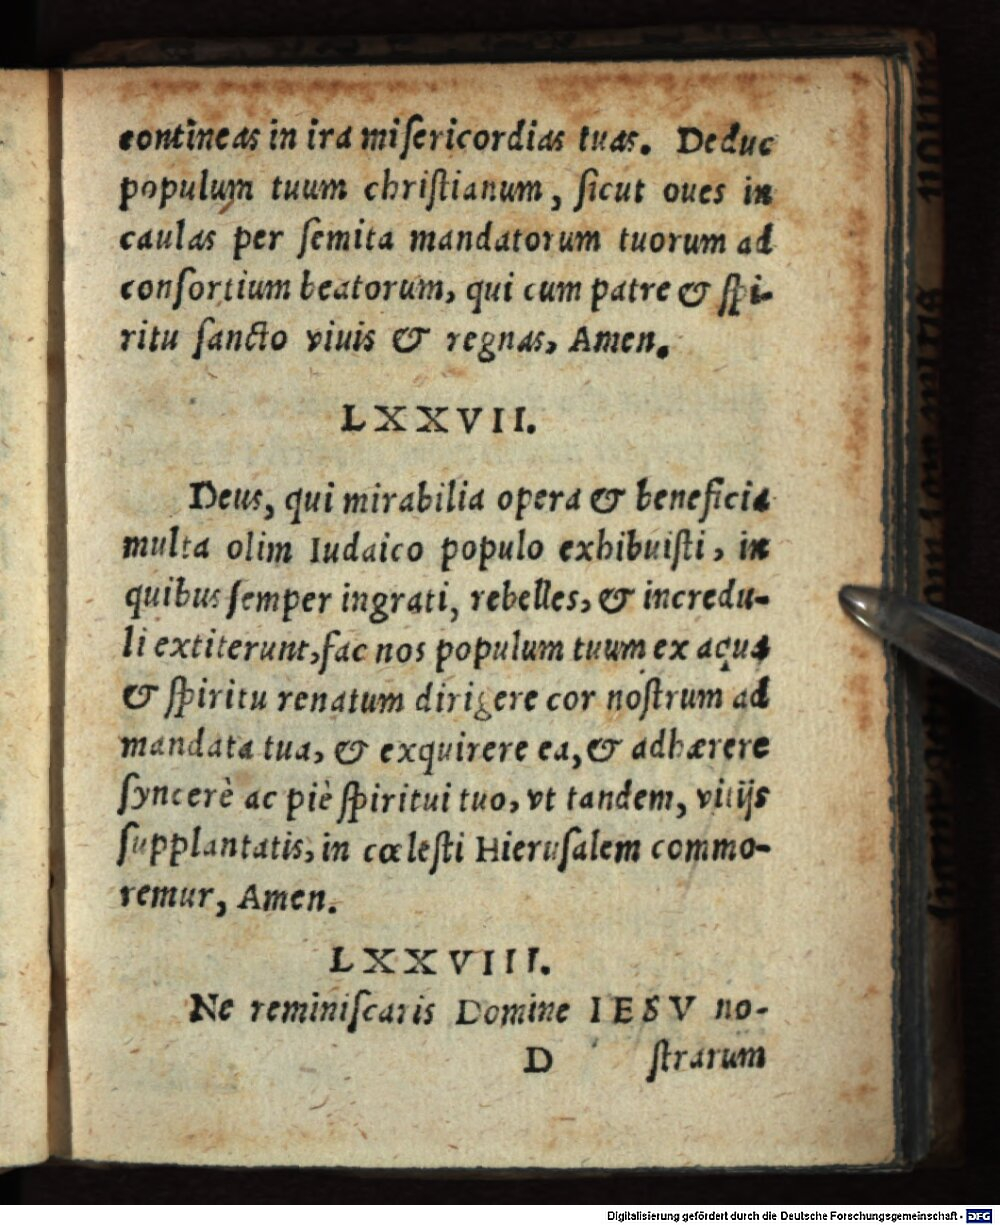 contineas in ira miſericordias tuas. Deduc
populum tuum chriſtianum, ſicut oues in
caulas per ſemita mandatorum tuorum ad
conſortium beatorum, qui cum patre & ſpi-
ritu ſancto viuis & regnas, Amen.
LXXVII.
Deus, qui mirabilia opera & beneficia
multa olim Iudaico populo exhibuiſti, in
quibus ſemper ingrati, rebelles, & incredu-
li extiterunt, fac nos populum tuum ex aqua
& ſpiritu renatum dirigere cor noſtrum ad
mandata tua, & exquirere ea, & adhærere
ſyncerè ac piè ſpiritui tuo, vt tandem, vitijs
ſupplantatis, in cœleſti Hieruſalem commo-
remur, Amen.
LXXVIII.
Ne reminiſcaris Domine IESV no-
D ſtrarum
Digitalisierung gefördert durch die Deutsche Forschungsgemeinschaft - DFG